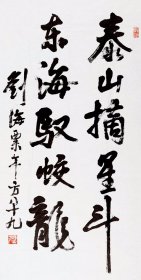 泰山摘星斗
东海驭蛟龍
劉海粟年方八十九